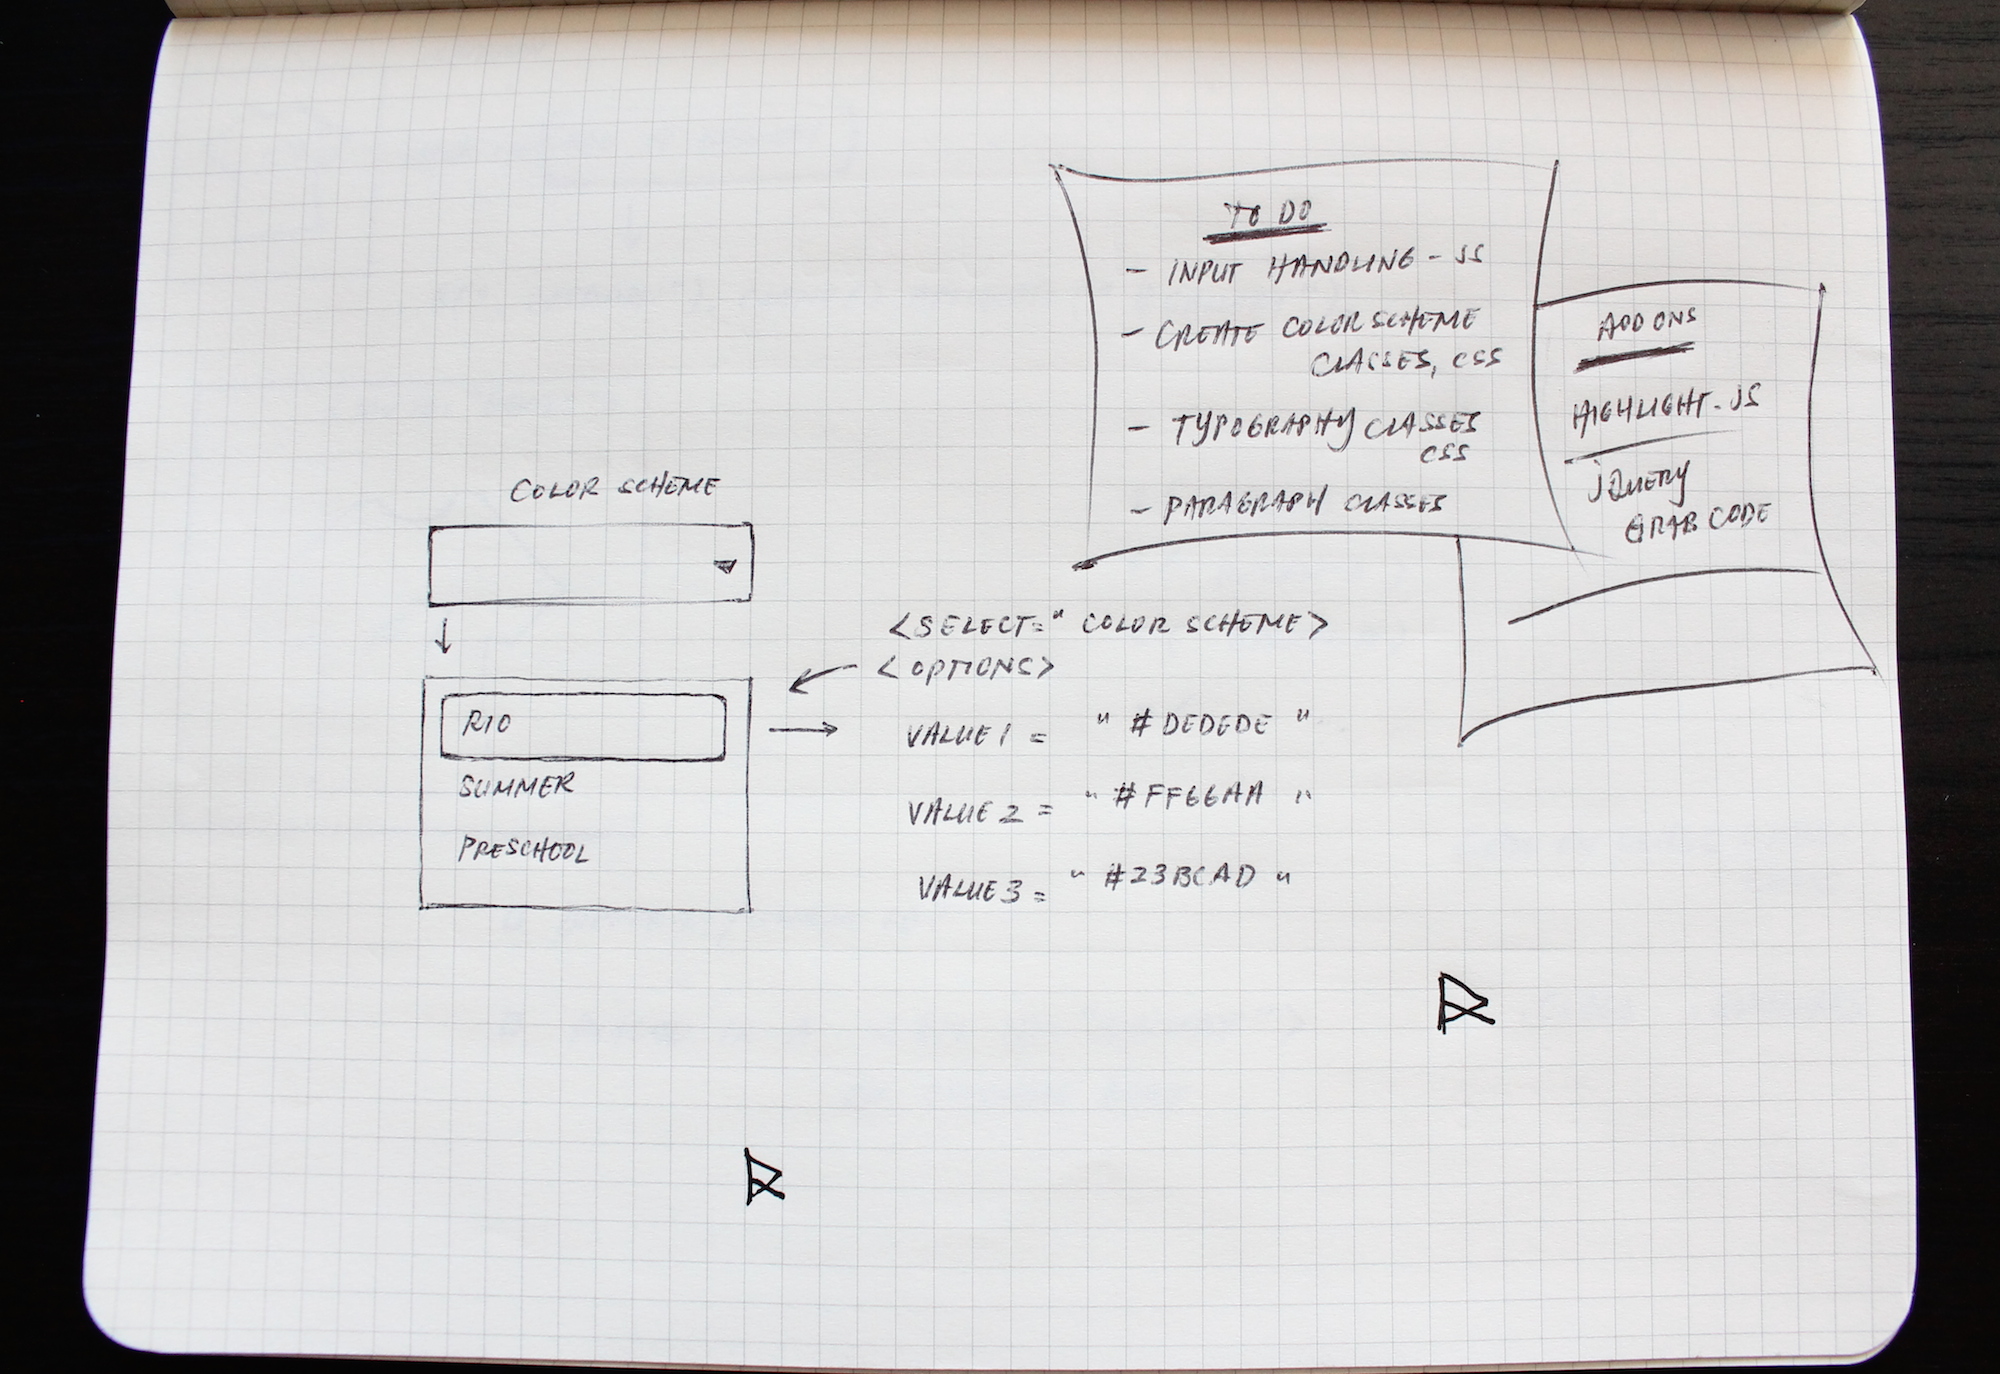 TO DO
- INPUT HANDLING - JS
- CREATE COLOR SCHEME
CLASSES, CSS
- TYPOGRAPHY CLASSES
CSS
- PARAGRAPH CLASSES
ADD ONS
HIGHLIGHT.JS
JQUERY
GRAB CODE
COLOR SCHEME
RIO
SUMMER
PRESCHOOL
<SELECT=" COLOR SCHEME>
<OPTIONS>
VALUE1 = " #DEDEDE "
VALUE2 = " #FF66AA "
VALUE3 = " #23BCAD "